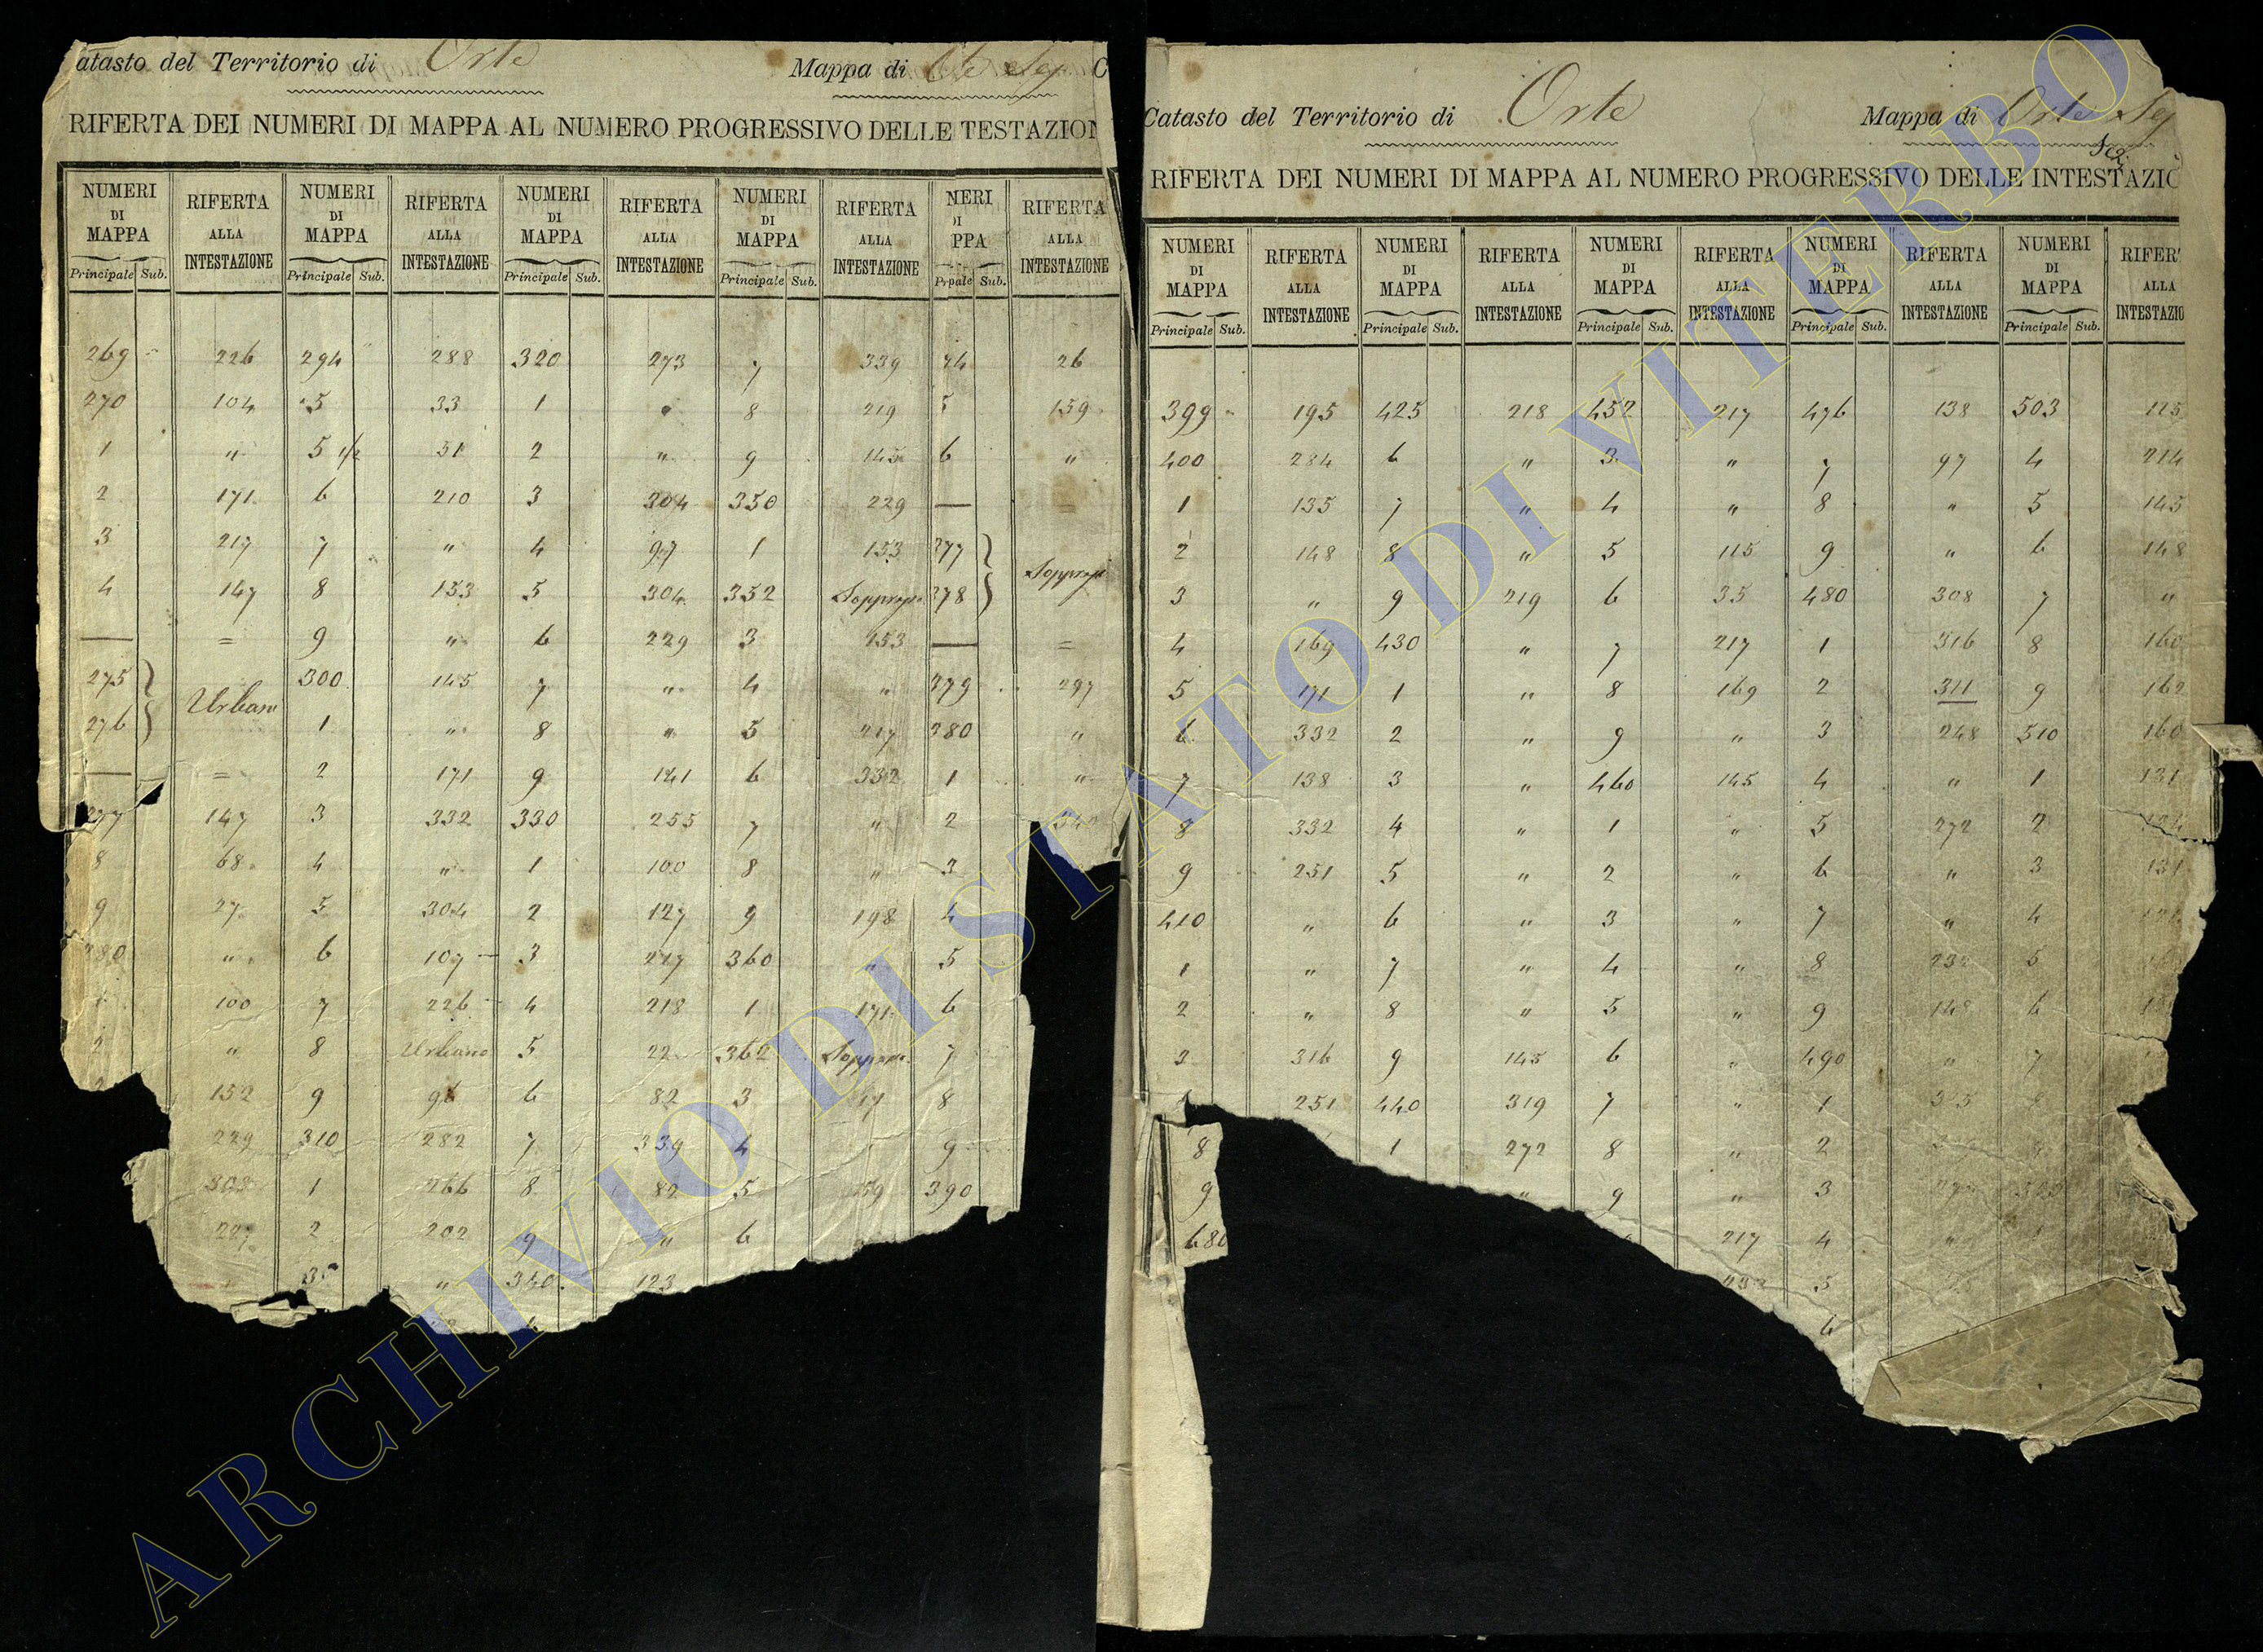 atasto del Territorio di Orte Mappa di
RIFERTA DEI NUMERI DI MAPPA AL NUMERO PROGRESSIVO DELLE TESTAZION
NUMERI DI MAPPA RIFERTA ALLA INTESTAZIONE NUMERI DI MAPPA RIFERTA ALLA INTESTAZIONE NUMERI DI MAPPA RIFERTA ALLA INTESTAZIONE NUMERI DI MAPPA RIFERTA ALLA INTESTAZIONE NERI DI PPA RIFERTA ALLA INTESTAZIONE
Principale Sub. Principale Sub. Principale Sub. Principale Sub. Prpale Sub.
269 " 226 294 " 288 320 273 7 339 74 26
270 104 5 33 1 " 8 219 5 159
1 " 5 1/2 51 2 " 9 145 6 "
2 171 6 210 3 304 350 229 — =
3 217 7 " 4 97 1 153 377
4 147 8 153 5 304 352 378
— = 9 " 6 229 3 153 — =
275 Urbano 300 145 7 " 4 " 379 297
276 1 " 8 " 5 217 380 "
— = 2 171 9 141 6 332 1 "
277 147 3 332 330 255 7 " 2
8 68 4 " 1 100 8 " 3
9 27 5 304 2 127 9 198 4
280 " 6 107 3 217 360 " 5
1 100 7 226 4 218 1 171 6
2 " 8 Urbano 5 22 362 7
152 9 96 6 82 3 8
229 310 282 7 339 4 9
303 1 266 8 82 5 390
2 202 9 " 6
" 340 123
Catasto del Territorio di Orte Mappa di Orte
RIFERTA DEI NUMERI DI MAPPA AL NUMERO PROGRESSIVO DELLE INTESTAZIO
NUMERI DI MAPPA RIFERTA ALLA INTESTAZIONE NUMERI DI MAPPA RIFERTA ALLA INTESTAZIONE NUMERI DI MAPPA RIFERTA ALLA INTESTAZIONE NUMERI DI MAPPA RIFERTA ALLA INTESTAZIONE NUMERI DI MAPPA RIFERT ALLA INTESTAZIO
Principale Sub. Principale Sub. Principale Sub. Principale Sub. Principale Sub.
399 " 195 425 218 452 217 476 138 503 125
400 284 6 " 3 " 7 97 4 214
1 135 7 " 4 " 8 " 5 145
2 148 8 " 5 115 9 " 6 148
3 " 9 219 6 35 480 308 7 "
4 169 430 " 7 217 1 316 8 160
5 171 1 " 8 169 2 311 9 162
6 332 2 " 9 " 3 248 510 160
7 138 3 " 460 145 4 " 1 131
8 332 4 " 1 " 5 272 2
9 251 5 " 2 " 6 " 3 131
410 " 6 " 3 " 7 " 4
1 " 7 " 4 " 8 232 5
2 " 8 " 5 " 9 148 6
3 316 9 145 6 " 490 " 7
251 440 319 7 " 1
8 1 272 8 " 2
9 " 9 " 3
680 217 4
5
6
ARCHIVIO DI STATO DI VITERBO